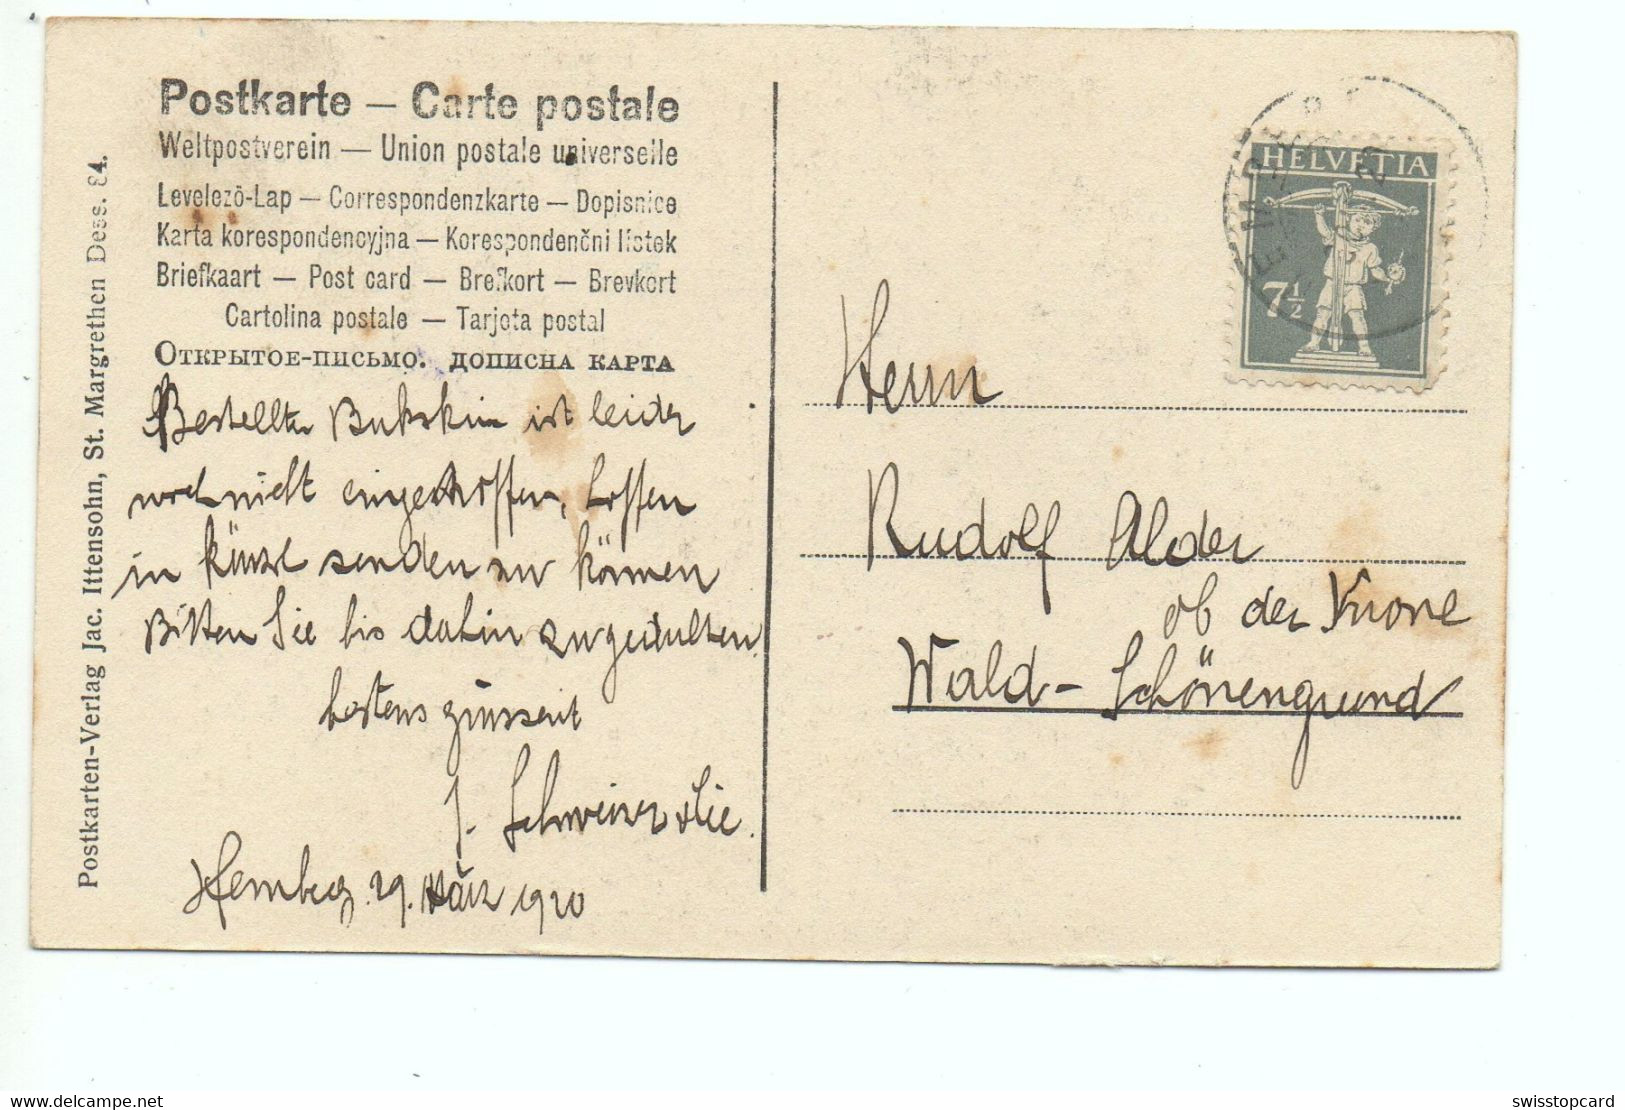 Postkarte — Carte postale
Weltpostverein — Union postale universelle
Levelezõ-Lap — Correspondenzkarte — Dopisnice
Karta korespondencyjna — Korespondenčni lístek
Briefkaart — Post card — Brefkort — Brevkort
Cartolina postale — Tarjeta postal
Открытое-письмо. дописна карта
Bestellter Bukskin ist leider
noch nicht eingetroffen, hoffen
in kürze senden zu können
Bitten Sie bis dahin zu gedulten.
bestens grüssent
J. Schweizer & Cie.
29. März 1920
Postkarten-Verlag Jac. Ittensohn, St. Margrethen Dess. 84.
HELVETIA
7½
Herrn
Rudolf Alder
ob der Krone
Wald - Schönengrund
swisstopcard
https://www.delcampe.net